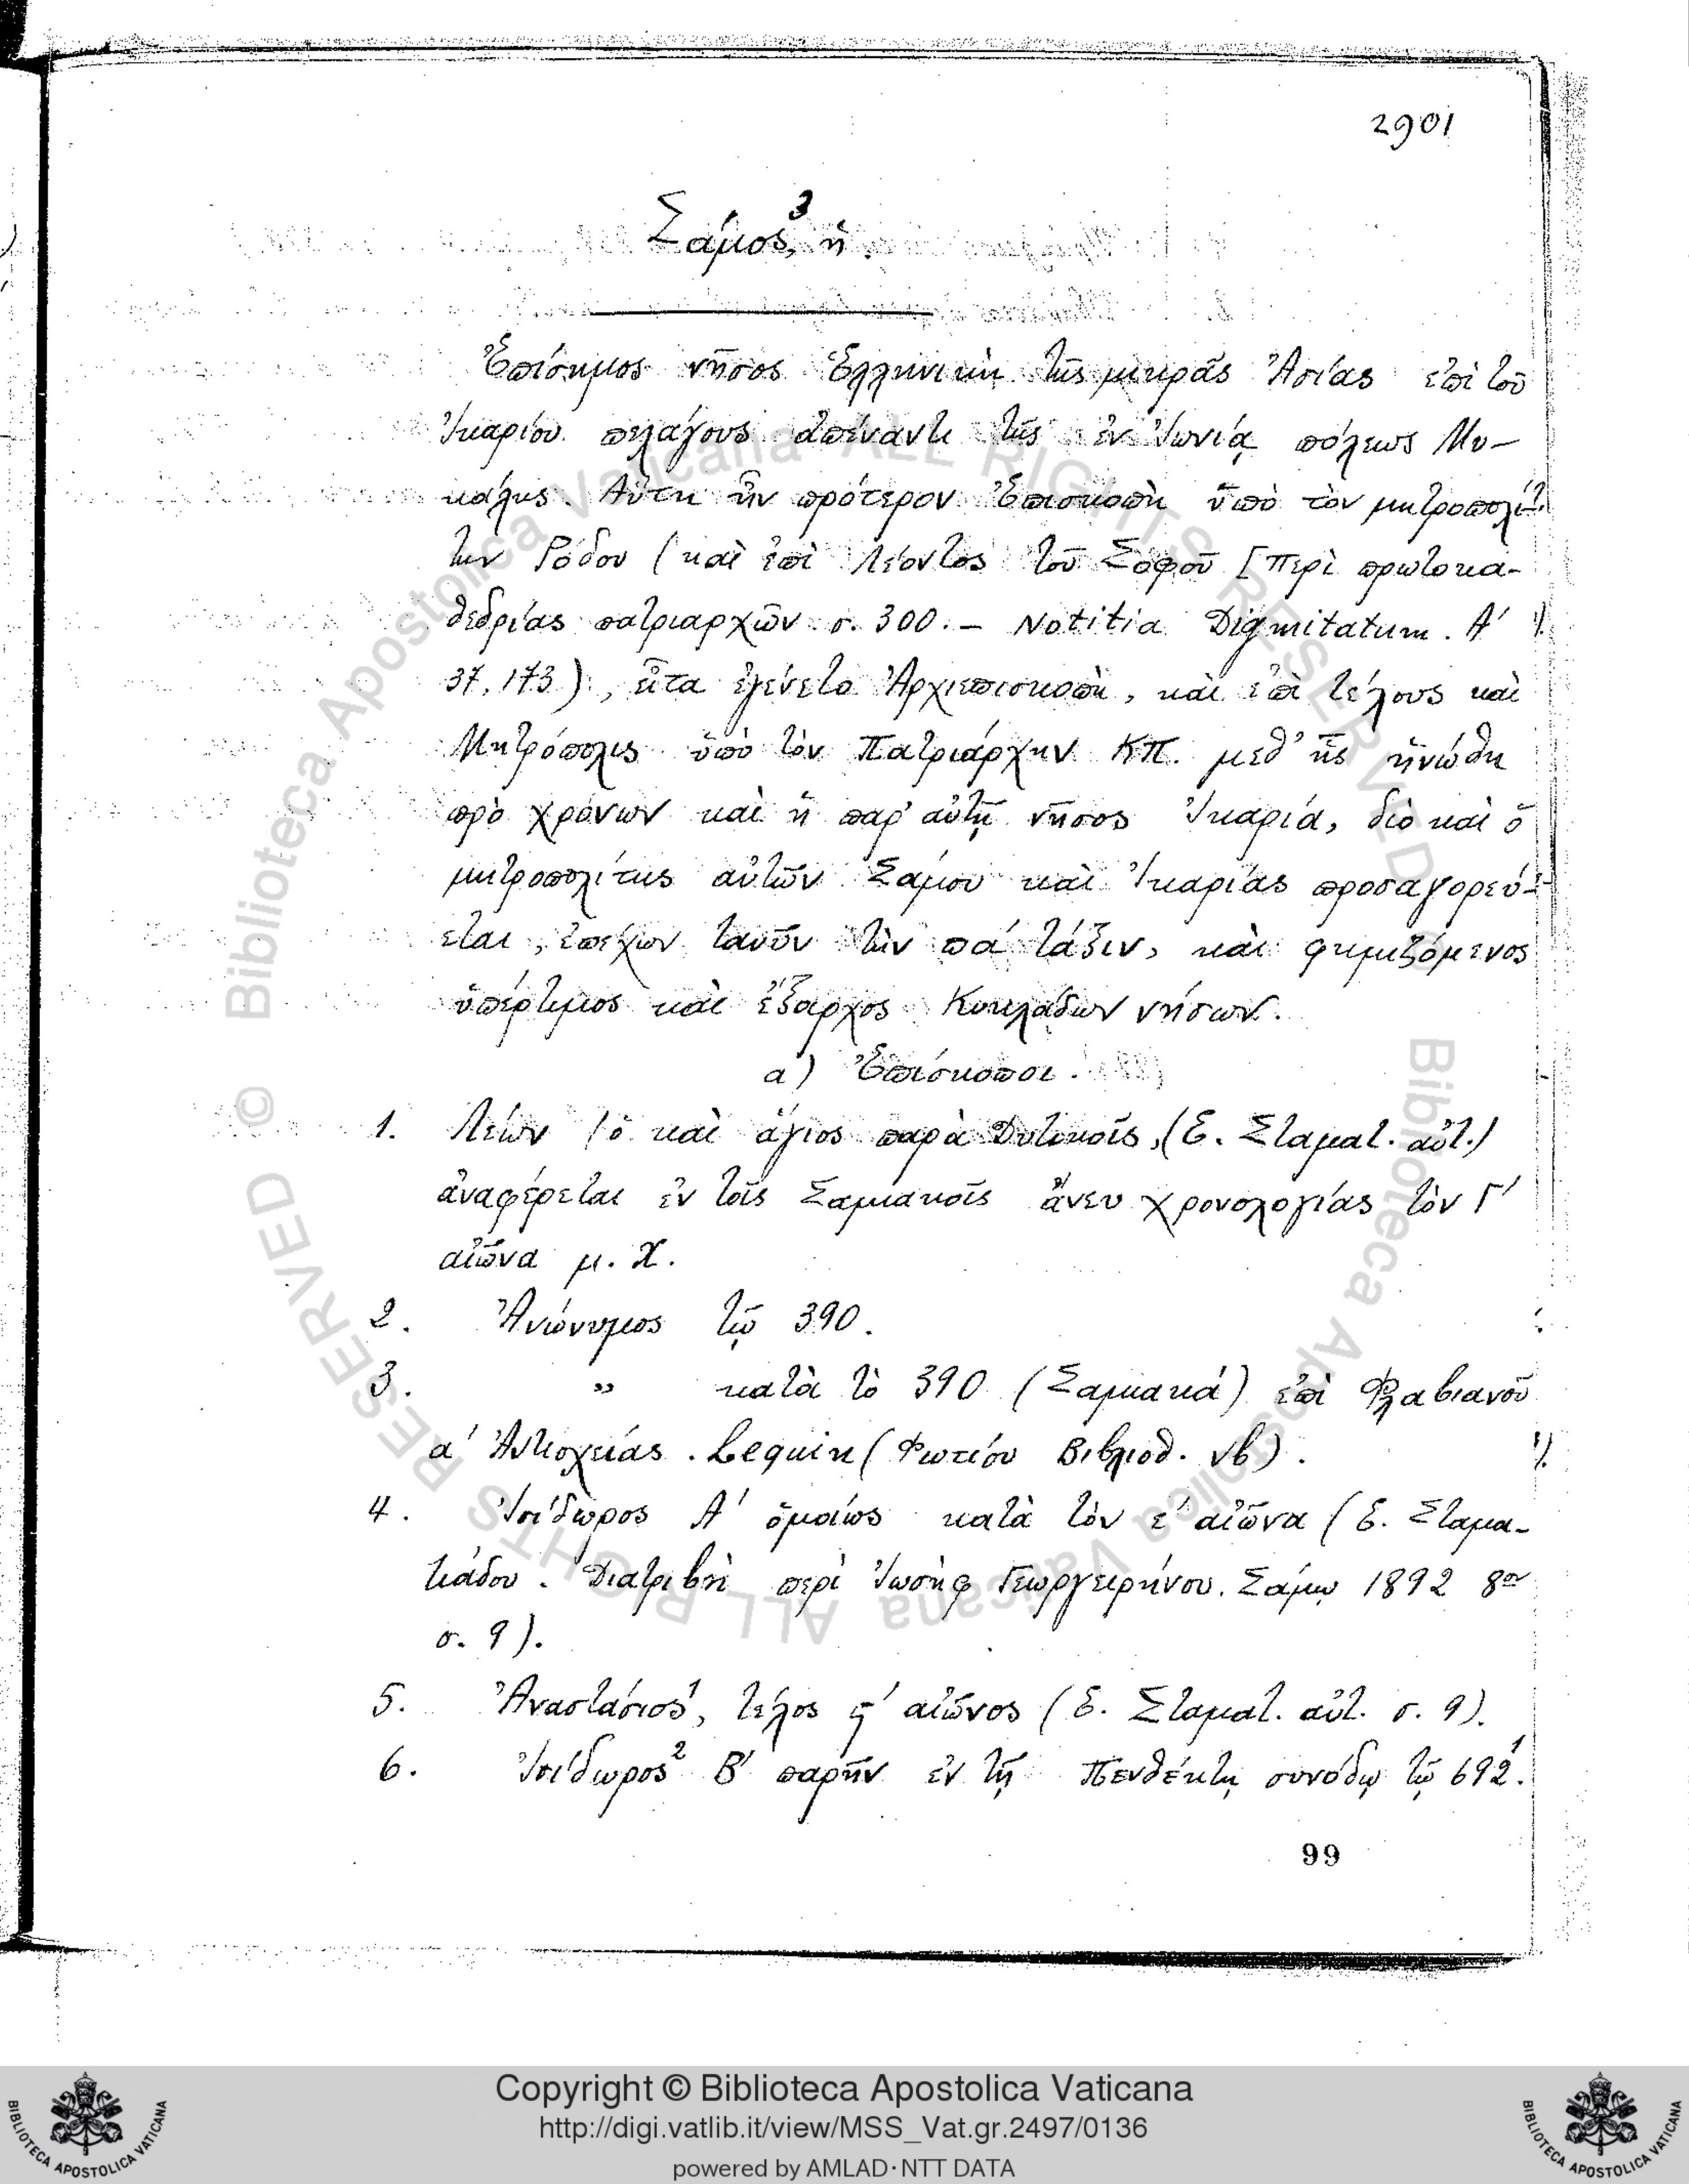 2901
Σάμος,³ ἡ.
Ἐπίσημος νῆσος Ἑλληνικὴ τῆς μικρᾶς Ἀσίας ἐπὶ τοῦ
Ἰκαρίου πελάγους ἀπέναντι τῆς ἐν Ἰωνίᾳ πόλεως Μυ-
κάλης. Αὕτη ἦν πρότερον Ἐπισκοπὴ ὑπὸ τὸν μητροπολί-
την Ρόδου (καὶ ἐπὶ Λέοντος τοῦ Σοφοῦ [Περὶ πρωτοκα-
θεδρίας πατριαρχῶν σ. 300. – Notitia Digmitatum. Α'
37, 173), εἶτα ἐγένετο Ἀρχιεπισκοπὴ, καὶ ἐπὶ τέλους καὶ
Μητρόπολις ὑπὸ τὸν Πατριάρχην ΚΠ. μεθ' ἧς ἡνώθη
πρὸ χρόνων καὶ ἡ παρ' αὐτῇ νῆσος Ἰκαρία, διὸ καὶ ὁ
μητροπολίτης αὐτῶν Σάμου καὶ Ἰκαρίας προσαγορεύ-
εται, ἐπέχων τανῦν τὴν πά τάξιν, καὶ φημιζόμενος
ὑπέρτιμος καὶ ἔξαρχος Κυκλάδων νήσων.
α) Ἐπίσκοποι.
1. Λέων (ὁ καὶ ἅγιος παρὰ Δυτικοῖς, (Ε. Σταματ. αὐτ.)
ἀναφέρεται ἐν τοῖς Σαμιακοῖς ἄνευ χρονολογίας τὸν Γ'
αἰῶνα μ. Χ.
2. Ἀνώνυμος τῷ 390.
3. " κατὰ τὸ 390 (Σαμιακά) ἐπὶ Φλαβιανοῦ
α' Ἀντιοχείας. Lequin (Φωτίου Βιβλιοθ. νβ).
4. Ἰσίδωρος Α' ὁμοίως κατὰ τὸν ε' αἰῶνα (Ε. Σταμα-
τιάδου. Διατριβὴ περὶ Ἰωσὴφ Γεωργειρήνου. Σάμῳ 1892 8ον
σ. 9).
5. Ἀναστάσιος¹, τέλος ϛ' αἰῶνος (Ε. Σταματ. αὐτ. σ. 9).
6. Ἰσίδωρος² Β' παρῆν ἐν τῇ Πενθέκτῃ συνόδῳ τῷ 692¹.
99
© Biblioteca Apostolica Vaticana ALL RIGHTS RESERVED
Biblioteca Apostolica Vaticana ALL RIGHTS RESERVED
Copyright © Biblioteca Apostolica Vaticana
http://digi.vatlib.it/view/MSS_Vat.gr.2497/0136
powered by AMLAD·NTT DATA
BIBLIOTECA APOSTOLICA VATICANA
BIBLIOTECA APOSTOLICA VATICANA